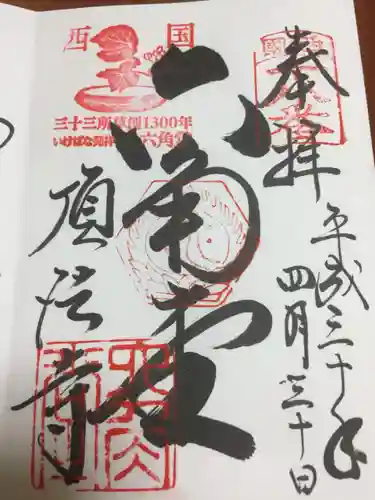 奉拝
平成三十年
四月三十日
六角堂
頂法寺
西国
三十三所草創1300年
いけばな発祥の地 六角堂